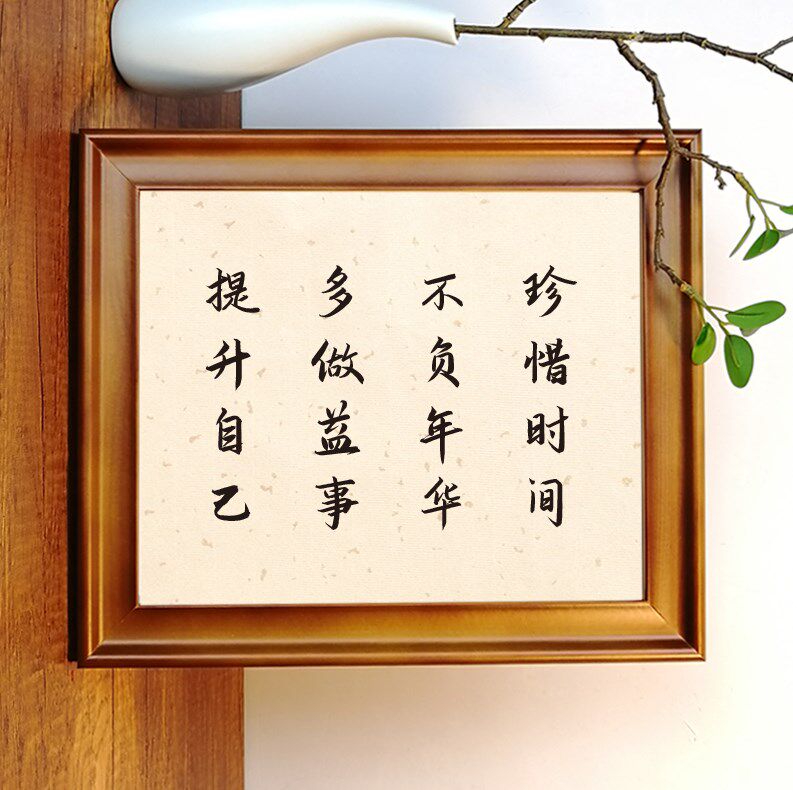 珍惜时间
不负年华
多做益事
提升自己